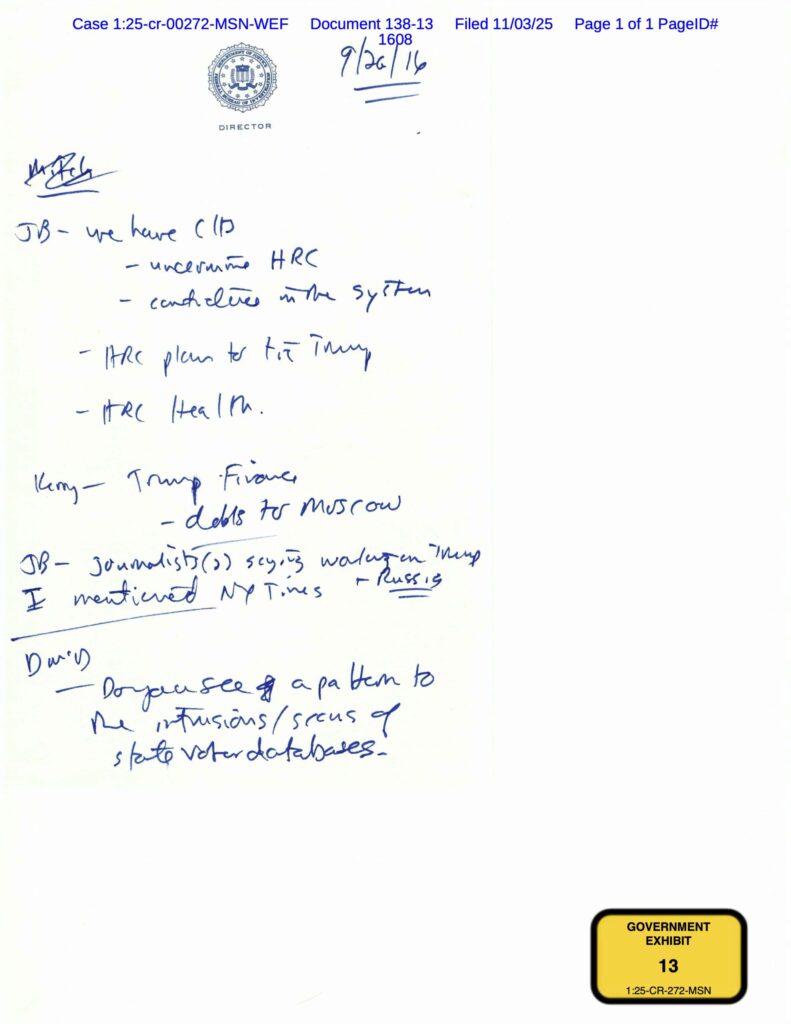 Case 1:25-cr-00272-MSN-WEF Document 138-13 Filed 11/03/25 Page 1 of 1 PageID#
1608
9/26/16
DEPARTMENT OF JUSTICE
FEDERAL BUREAU OF INVESTIGATION
DIRECTOR
JB - we have
- undermine HRC
- candidates in the system
- HRC plan to tie Trump
- HRC Health.
Kerry - Trump Finance
- debts to Moscow
JB - journalists(2) saying working on Trump
+ Russia
I mentioned NY Times
DWD
- Do you see a pattern to
the intrusions/scans of
state voter databases.
GOVERNMENT
EXHIBIT
13
1:25-CR-272-MSN